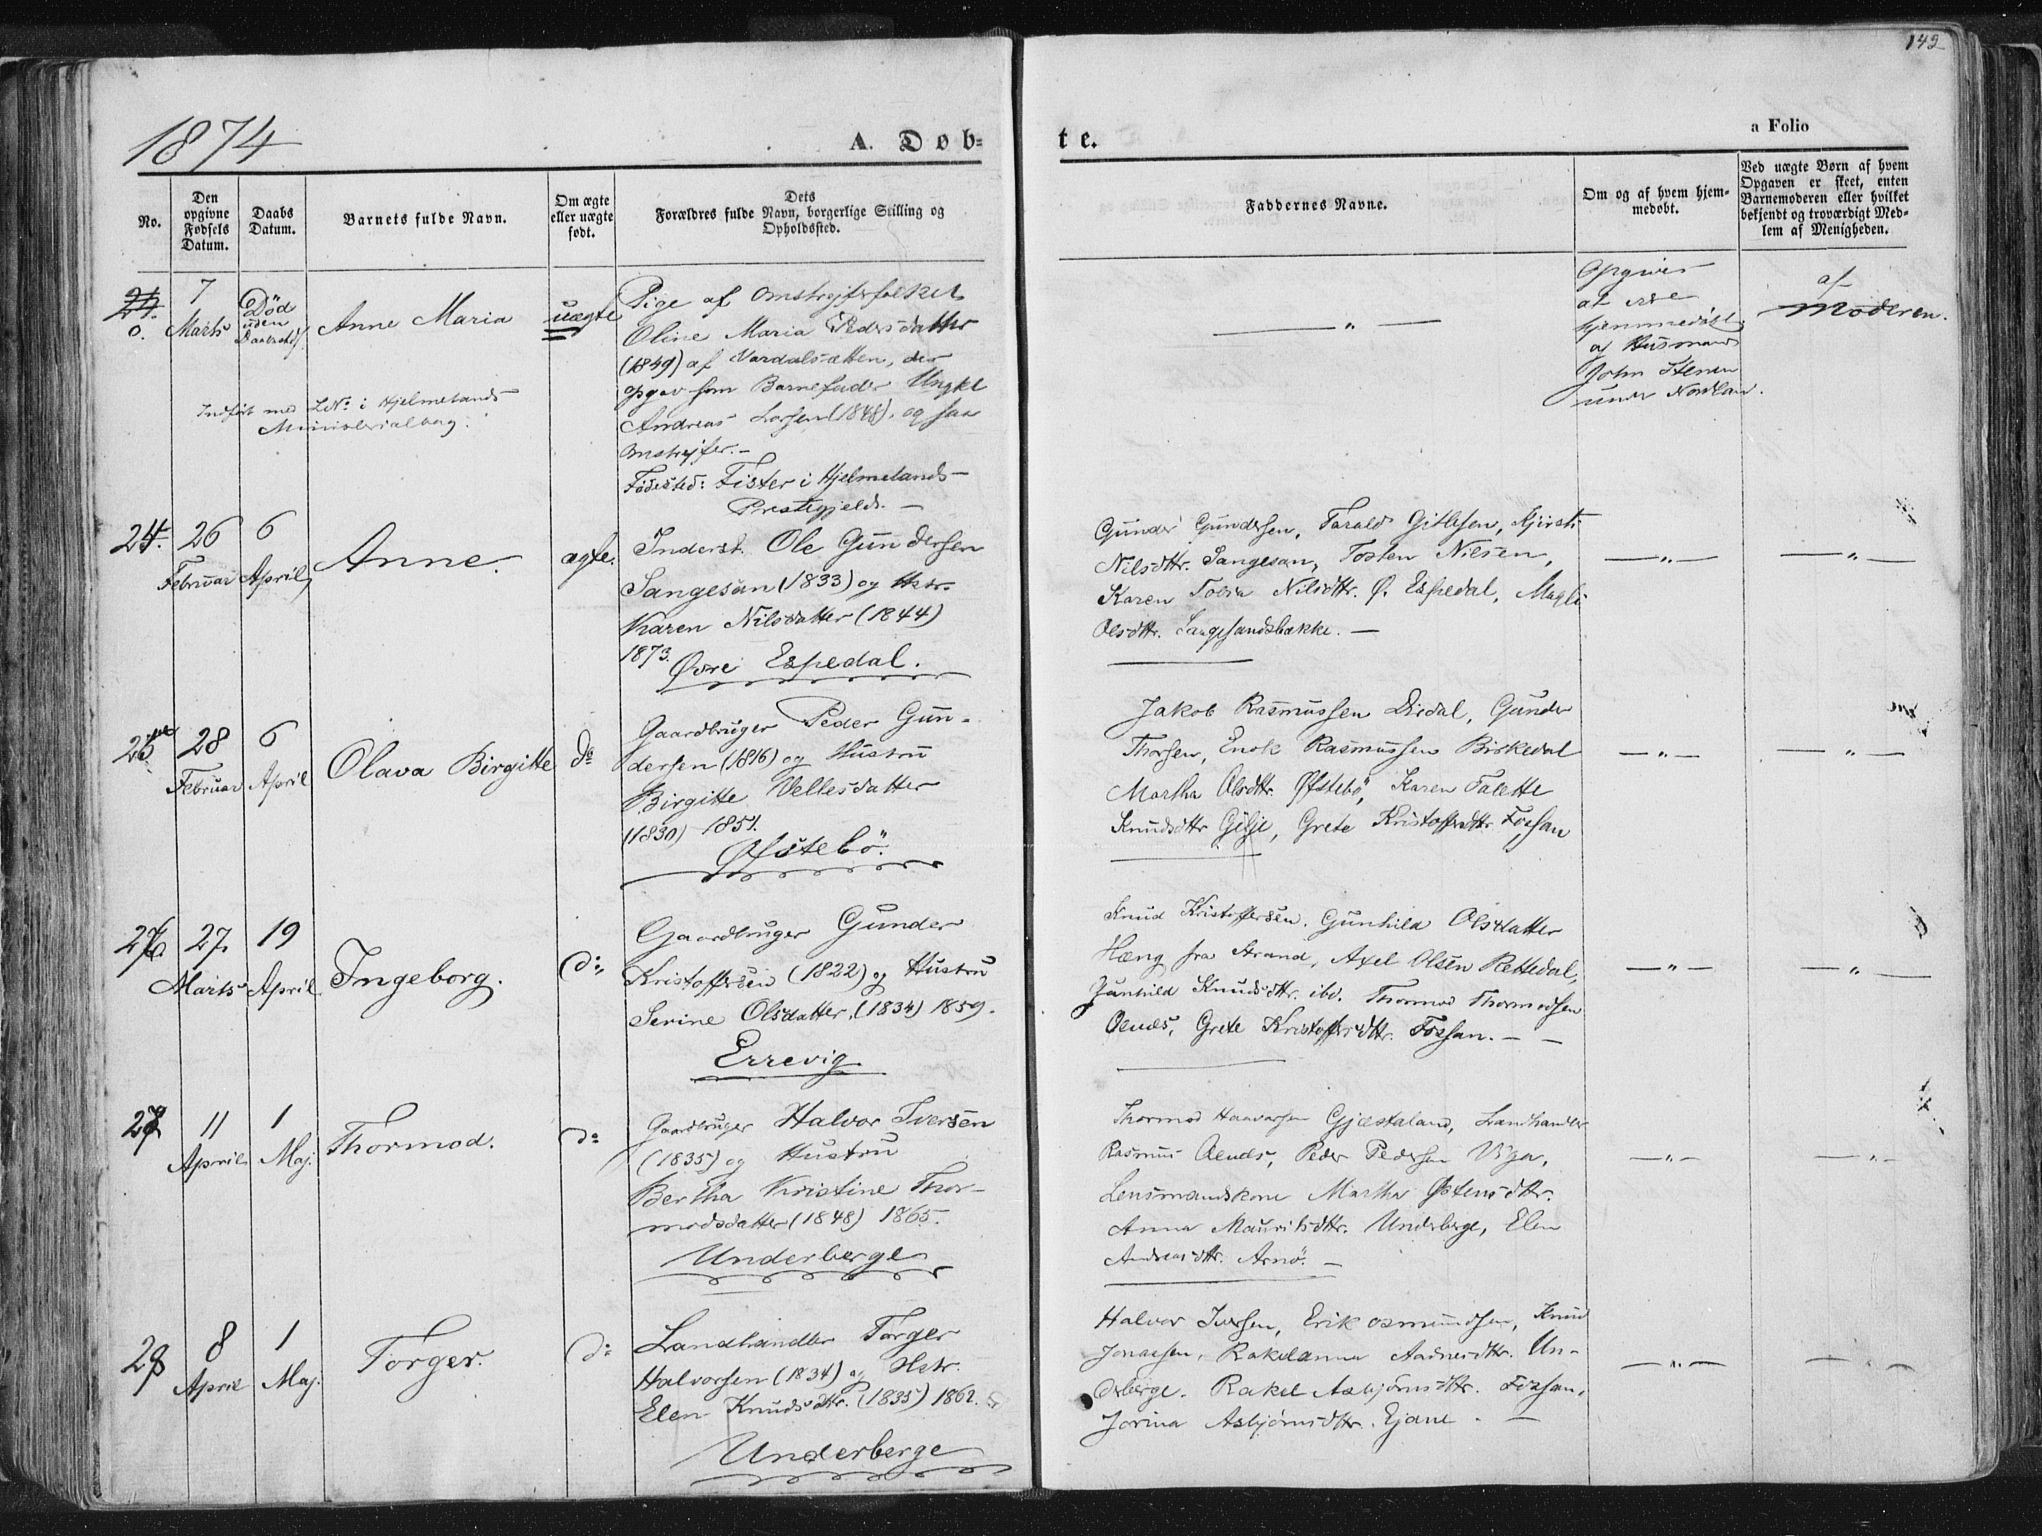 142
1874
A. Døb-
te.
a Folio
No.
Den
opgivne
Fødsels
Datum.
Daabs
Datum.
Barnets fulde Navn.
Om ægte
eller uægte
født.
Dets
Forældres fulde Navn, borgerlige Stilling og
Opholdssted.
Faddernes Navne.
Om og af hvem hjem-
medøbt.
Ved uægte Børn af hvem
Opgaven er skeet, enten
Barnemoderen eller hvilket
bekjendt og troværdigt Med-
lem af Menigheden.
24.
0.
7
Marts
Død
uden
Anne Maria
uægte
Pige af Omstrejferfolket
Oline Maria Pedersdatter
(1849) af Vardalsætten, der
opgav som Barnefader Ungkl
Andreas Larsen (1848), og saa
Omstrejfer.—
Fødested: Fister i Hjelmelands-
Prestegjeld. —
Indført med L.No. i Hjelmelands
Ministerialbog.
— „ —
Opgives
at være
hjemmedøbt
af Husmand
John Stenen
under Nordlan.
af
Moderen.
24.
26
Februar
6
April
Anne.
ægte.
Inderst. Ole Gundersen
Sangesan (1833) og Hstr.
Karen Nilsdatter (1844)
1873.
Øvre Espedal.
Gunder Gundersen, Tarald Gitlesen, Kjirsti
Nilsdttr. Sangesan, Tosten Nilsen,
Karen Tobia Nilsdttr. Ø. Espedal, Magli
Olsdttr. Sangesandsbakke. —
— „ —
— „ —
25
28
Februar
6
April
Olava Birgitte
do
Gaardbruger Peder Gun-
dersen (1816) og Hustru
Birgitte Vellesdatter
(1830) 1851.
Øfstebö.
Jakob Rasmussen Diedal, Gunder
Thorsen, Enok Rasmussen Birkedal
Martha Olsdttr. Øfstebö, Karen Talette
Knudsdttr Gilje, Grete Kristoffersdttr. Fossan
— „ —
— „ —
26
27.
Marts
19
April
Ingeborg.
do.
Gaardbruger Gunder
Kristoffersen (1822) og Hustru
Serine Olsdatter, (1834) 1859.
Errevig
Knud Kristoffersen, Gunhild Olsdatter
Høeng fra Strand, Axel Olsen Rettedal,
Gunhild Knudsdttr. ibd. Thormod Thormodsen
Oends, Grete Kristoffersdttr. Fossan. — —
— „ —
— „ —
27
11
April
1
Maj.
Thormod.
do
Gaardbruger Halvor Iversen
(1835) og Hustru
Bertha Kristine Thor-
modsdatter (1848) 1865.
Underberge
Thormod Haavarsen Gjestaland, Landhandler
Rasmus Oends, Peder Pedersen Viga,
Lensmandskone Martha Østensdttr.
Anna Mauritsdttr. Underberge, Elen
Andreasdttr. Arnö. —
— „ —
— „ —
28
8
April
1
Maj.
Torger.
do
Landhandler Torger
Halvorsen (1834) og Hstr.
Elen Knudsdttr. (1835) 1862.
Underberge
Halvor Iversen, Erik Osmundsen, Knud
Jonassen, Rakelanna Aadnesdttr. Un-
derberge. Rakel Asbjørnsdttr. Fossan,
Jorina Asbjørnsdttr. Ejane. —
— „ —
— „ —